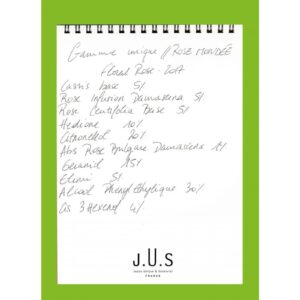 Gamme unique // ROSE MONDÉE
Floral Rose - 2017
Cassis base 5%
Rose Infusion Damascena 5%
Rose Centifolia Base 5%
Hedione 10%
Citronellol 20%
Abs Rose Bulgare Damascena 1%
Geraniol 15%
Elemi 5%
Alcool Phenyl Ethylique 30%
Cis 3 Hexenol 4%
J.U.S
FRANCE